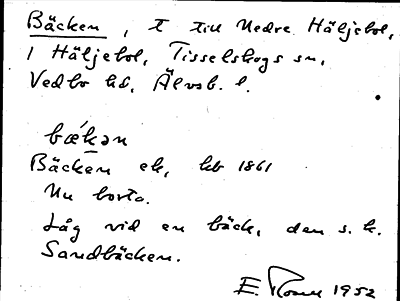 Bäcken, t till Nedre Häljebol,
1 Häljebol, Tisselskogs sn,
Vedbo hd, Älvsb. l.
bækən
Bäcken ek, hb 1861
Nu borta.
Låg vid en bäck, den s. k.
Sandbäcken.
E. 1952